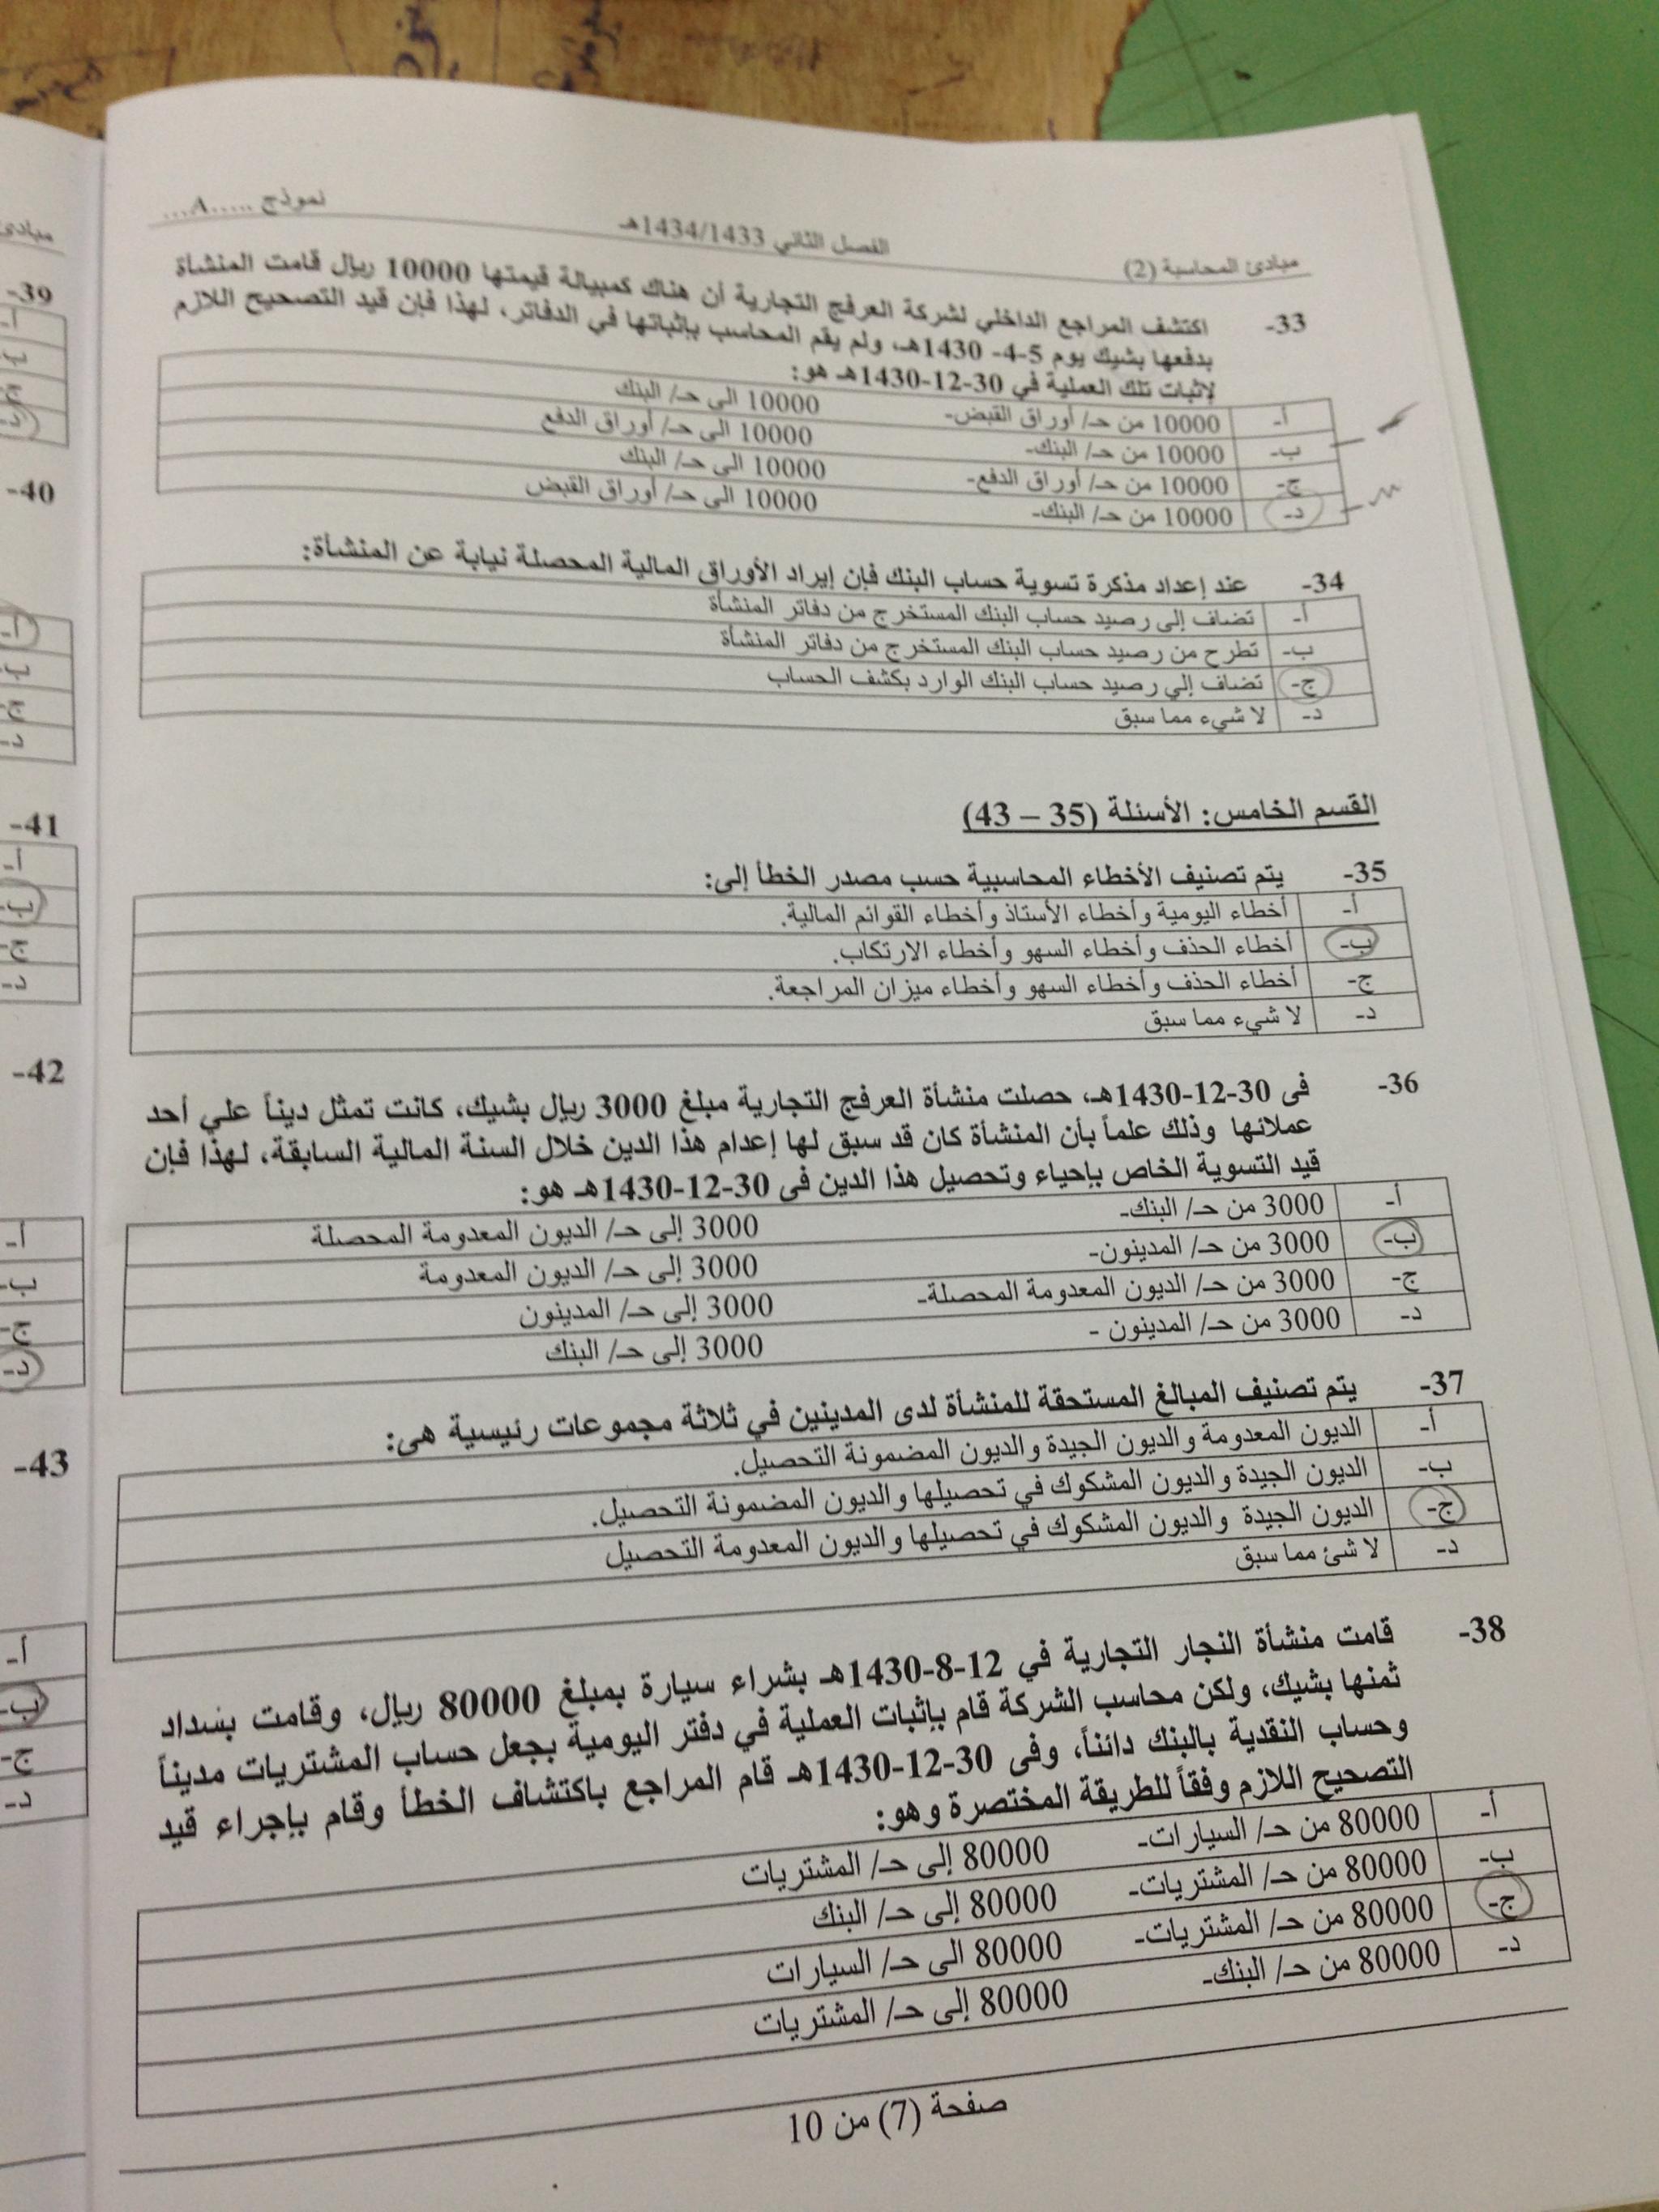 مبادئ المحاسبة (2) الفصل الثاني 1434/1433هـ نموذج .....A...
33- اكتشف المراجع الداخلي لشركة العرفج التجارية أن هناك كمبيالة قيمتها 10000 ريال قامت المنشأة
بدفعها بشيك يوم 5-4- 1430هـ، ولم يقم المحاسب بإثباتها في الدفاتر، لهذا فإن قيد التصحيح اللازم
لإثبات تلك العملية في 30-12-1430هـ هو:
أ- 10000 من حـ/ أوراق القبض- 10000 الى حـ/ البنك
ب- 10000 من حـ/ البنك- 10000 الى حـ/ أوراق الدفع
ج- 10000 من حـ/ أوراق الدفع- 10000 الى حـ/ البنك
د- 10000 من حـ/ البنك- 10000 الى حـ/ أوراق القبض
34- عند إعداد مذكرة تسوية حساب البنك فإن إيراد الأوراق المالية المحصلة نيابة عن المنشأة:
أ- تضاف إلى رصيد حساب البنك المستخرج من دفاتر المنشأة
ب- تطرح من رصيد حساب البنك المستخرج من دفاتر المنشأة
ج- تضاف إلي رصيد حساب البنك الوارد بكشف الحساب
د- لا شيء مما سبق
القسم الخامس: الأسئلة (35 – 43)
35- يتم تصنيف الأخطاء المحاسبية حسب مصدر الخطأ إلى:
أ- أخطاء اليومية وأخطاء الأستاذ وأخطاء القوائم المالية.
ب- أخطاء الحذف وأخطاء السهو وأخطاء الارتكاب.
ج- أخطاء الحذف وأخطاء السهو وأخطاء ميزان المراجعة.
د- لا شيء مما سبق
36- فى 30-12-1430هـ، حصلت منشأة العرفج التجارية مبلغ 3000 ريال بشيك، كانت تمثل ديناً علي أحد
عملائها وذلك علماً بأن المنشأة كان قد سبق لها إعدام هذا الدين خلال السنة المالية السابقة، لهذا فإن
قيد التسوية الخاص بإحياء وتحصيل هذا الدين فى 30-12-1430هـ هو:
أ- 3000 من حـ/ البنك- 3000 إلى حـ/ الديون المعدومة المحصلة
ب- 3000 من حـ/ المدينون- 3000 إلى حـ/ الديون المعدومة
ج- 3000 من حـ/ الديون المعدومة المحصلة- 3000 إلى حـ/ المدينون
د- 3000 من حـ/ المدينون - 3000 إلى حـ/ البنك
37- يتم تصنيف المبالغ المستحقة للمنشأة لدى المدينين في ثلاثة مجموعات رئيسية هى:
أ- الديون المعدومة والديون الجيدة والديون المضمونة التحصيل.
ب- الديون الجيدة والديون المشكوك في تحصيلها والديون المضمونة التحصيل.
ج- الديون الجيدة والديون المشكوك في تحصيلها والديون المعدومة التحصيل
د- لا شئ مما سبق
38- قامت منشأة النجار التجارية في 12-8-1430هـ بشراء سيارة بمبلغ 80000 ريال، وقامت بسداد
ثمنها بشيك، ولكن محاسب الشركة قام بإثبات العملية في دفتر اليومية بجعل حساب المشتريات مديناً
وحساب النقدية بالبنك دائناً، وفى 30-12-1430هـ قام المراجع باكتشاف الخطأ وقام بإجراء قيد
التصحيح اللازم وفقاً للطريقة المختصرة وهو:
أ- 80000 من حـ/ السيارات- 80000 إلى حـ/ المشتريات
ب- 80000 من حـ/ المشتريات- 80000 إلى حـ/ البنك
ج- 80000 من حـ/ المشتريات- 80000 الى حـ/ السيارات
د- 80000 من حـ/ البنك- 80000 إلى حـ/ المشتريات
صفحة (7) من 10
39-
أ-
ب-
ج-
د-
40-
أ-
ب-
ج-
د-
41-
أ-
ب-
ج-
د-
42-
أ-
ب-
ج-
د-
43-
أ-
ب-
ج-
د-